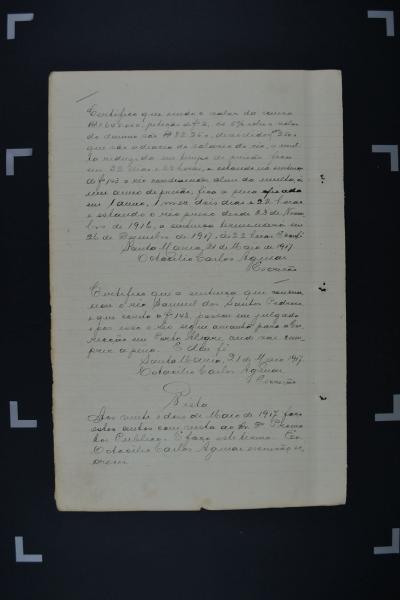 Certifico que sendo o valor da causa
de damno são
que são o diario do salario do réo, a mul
ta reduzida em tempo de prisão fica
em 32 dias e 22 horas, e estando na sentença
de fl 143 o réo condemnado alem da multa, a
um anno de prisão, fica a pena
em 1 anno, 1 mez, dois dias e 22 horas
e estando o réo preso desde 23 de Novem
bro de 1916, a sentença terminará em
26 de Dezembro de 1917, ás 22 horas. Dou fé
Santa Maria, 21 de Maio de 1917.
Octacilio Carlos Aguiar
Escrivão
Certifico que a sentença que
nou o réo Samuel dos Santos Pedroso
e que consta a fl 143, passou em julgado
e por isso o réo segue amanhã para a Cor
recção em Porto Alegre, onde vae cum
prir a pena. E dou fé
Santa Maria, 21 de Maio 1917
Octacilio Carlos Aguiar
Escrivão
Vista
Aos vinte e dois de Maio de 1917, faço
estes autos com vista ao Dr. Promo
tor Publico. E faço este termo. Eu
Octacilio Carlos Aguiar escrivão es
crevi